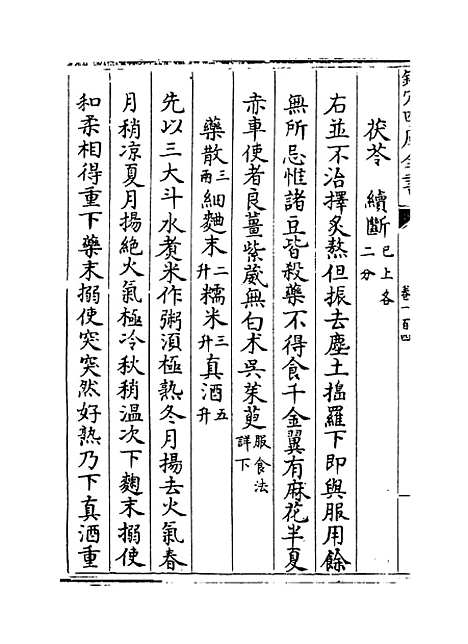 欽定四庫全書
卷一百四
茯苓 續斷已上各二分
右並不治擇炙熬但振去塵土搗羅下即與服用餘
無所忌惟諸豆皆殺藥不得食千金翼有麻花半夏
赤車使者良薑紫葳無白术吳茱萸服食法詳下
藥散三兩細麯末二升糯米三升真酒五升
先以三大斗水煑米作粥湏極熟冬月揚去火氣春
月稍凉夏月揚絶火氣極冷秋稍溫次下麴末搦使
和柔相得重下藥末搦使突突然好熟乃下真酒重